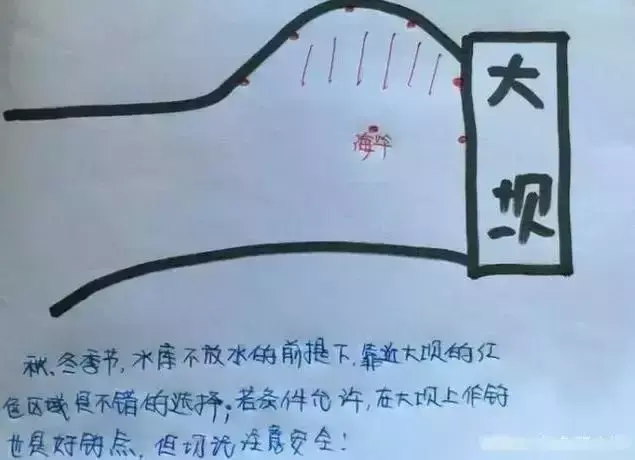 大坝
海竿
秋、冬季节,水库不放水的前提下,靠近大坝的红
色区域是不错的选择;若条件允许,在大坝上作钓
也是好钓点,但切记注意安全!